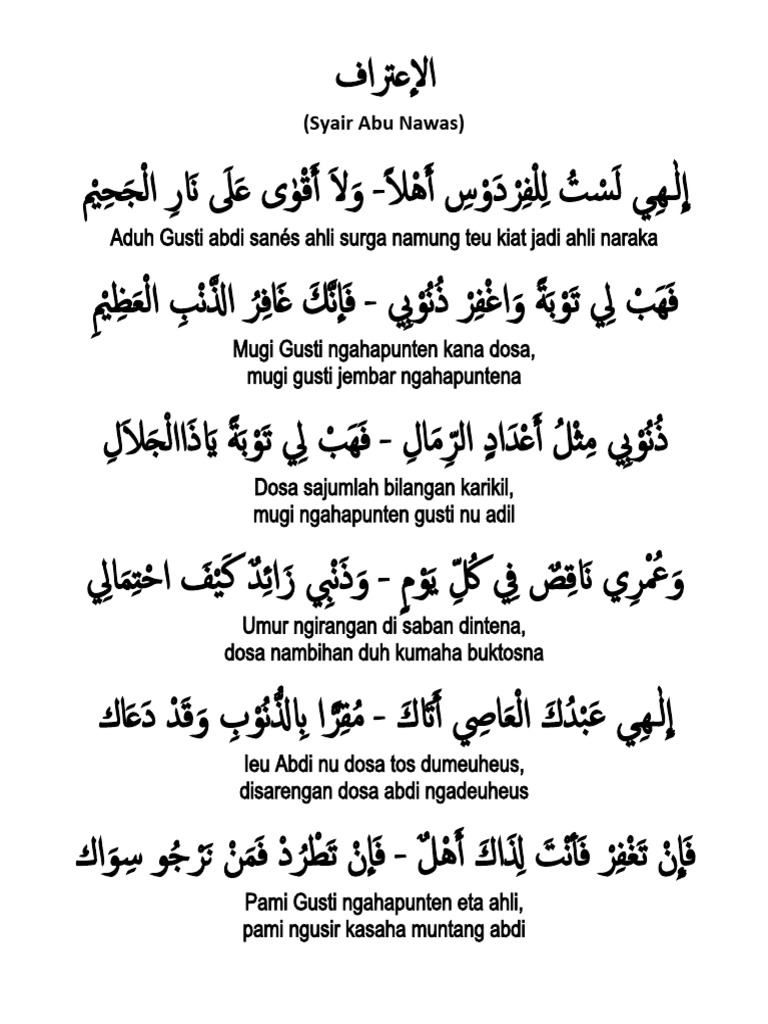 الإعتراف
(Syair Abu Nawas)
إِلٰـهِي لَسْتُ لِلْفِرْدَوْسِ أَهْلاً- وَلاَ أَقْوٰى عَلَى نَارِ الْجَحِيْمِ
Aduh Gusti abdi sanés ahli surga namung teu kiat jadi ahli naraka
فَهَبْ لِي تَوْبَةً وَاغْفِرْ ذُنُوْبِي - فَإِنَّكَ غَافِرُ الذَّنْبِ الْعَظِيْمِ
Mugi Gusti ngahapunten kana dosa,
mugi gusti jembar ngahapuntena
ذُنُوْبِي مِثْلُ أَعْدَادٍ الرِّمَالِ - فَهَبْ لِي تَوْبَةً يَاذَاالْجَلاَلِ
Dosa sajumlah bilangan karikil,
mugi ngahapunten gusti nu adil
وَعُمْرِي نَاقِصٌ فِي كُلِّ يَوْمٍ - وَذَنْبِي زَائِدٌ كَيْفَ احْتِمَالِي
Umur ngirangan di saban dintena,
dosa nambihan duh kumaha buktosna
إِلٰـهِي عَبْدُكَ الْعَاصِي أَتَاكَ - مُقِرًّا بِالذُّنُوْبِ وَقَدْ دَعَاك
Ieu Abdi nu dosa tos dumeuheus,
disarengan dosa abdi ngadeuheus
فَإِنْ تَغْفِرْ فَأَنْتَ لِذَاكَ أَهْلٌ - فَإِنْ تَطْرُدْ فَمَنْ نَرْجُو سِوَاك
Pami Gusti ngahapunten eta ahli,
pami ngusir kasaha muntang abdi